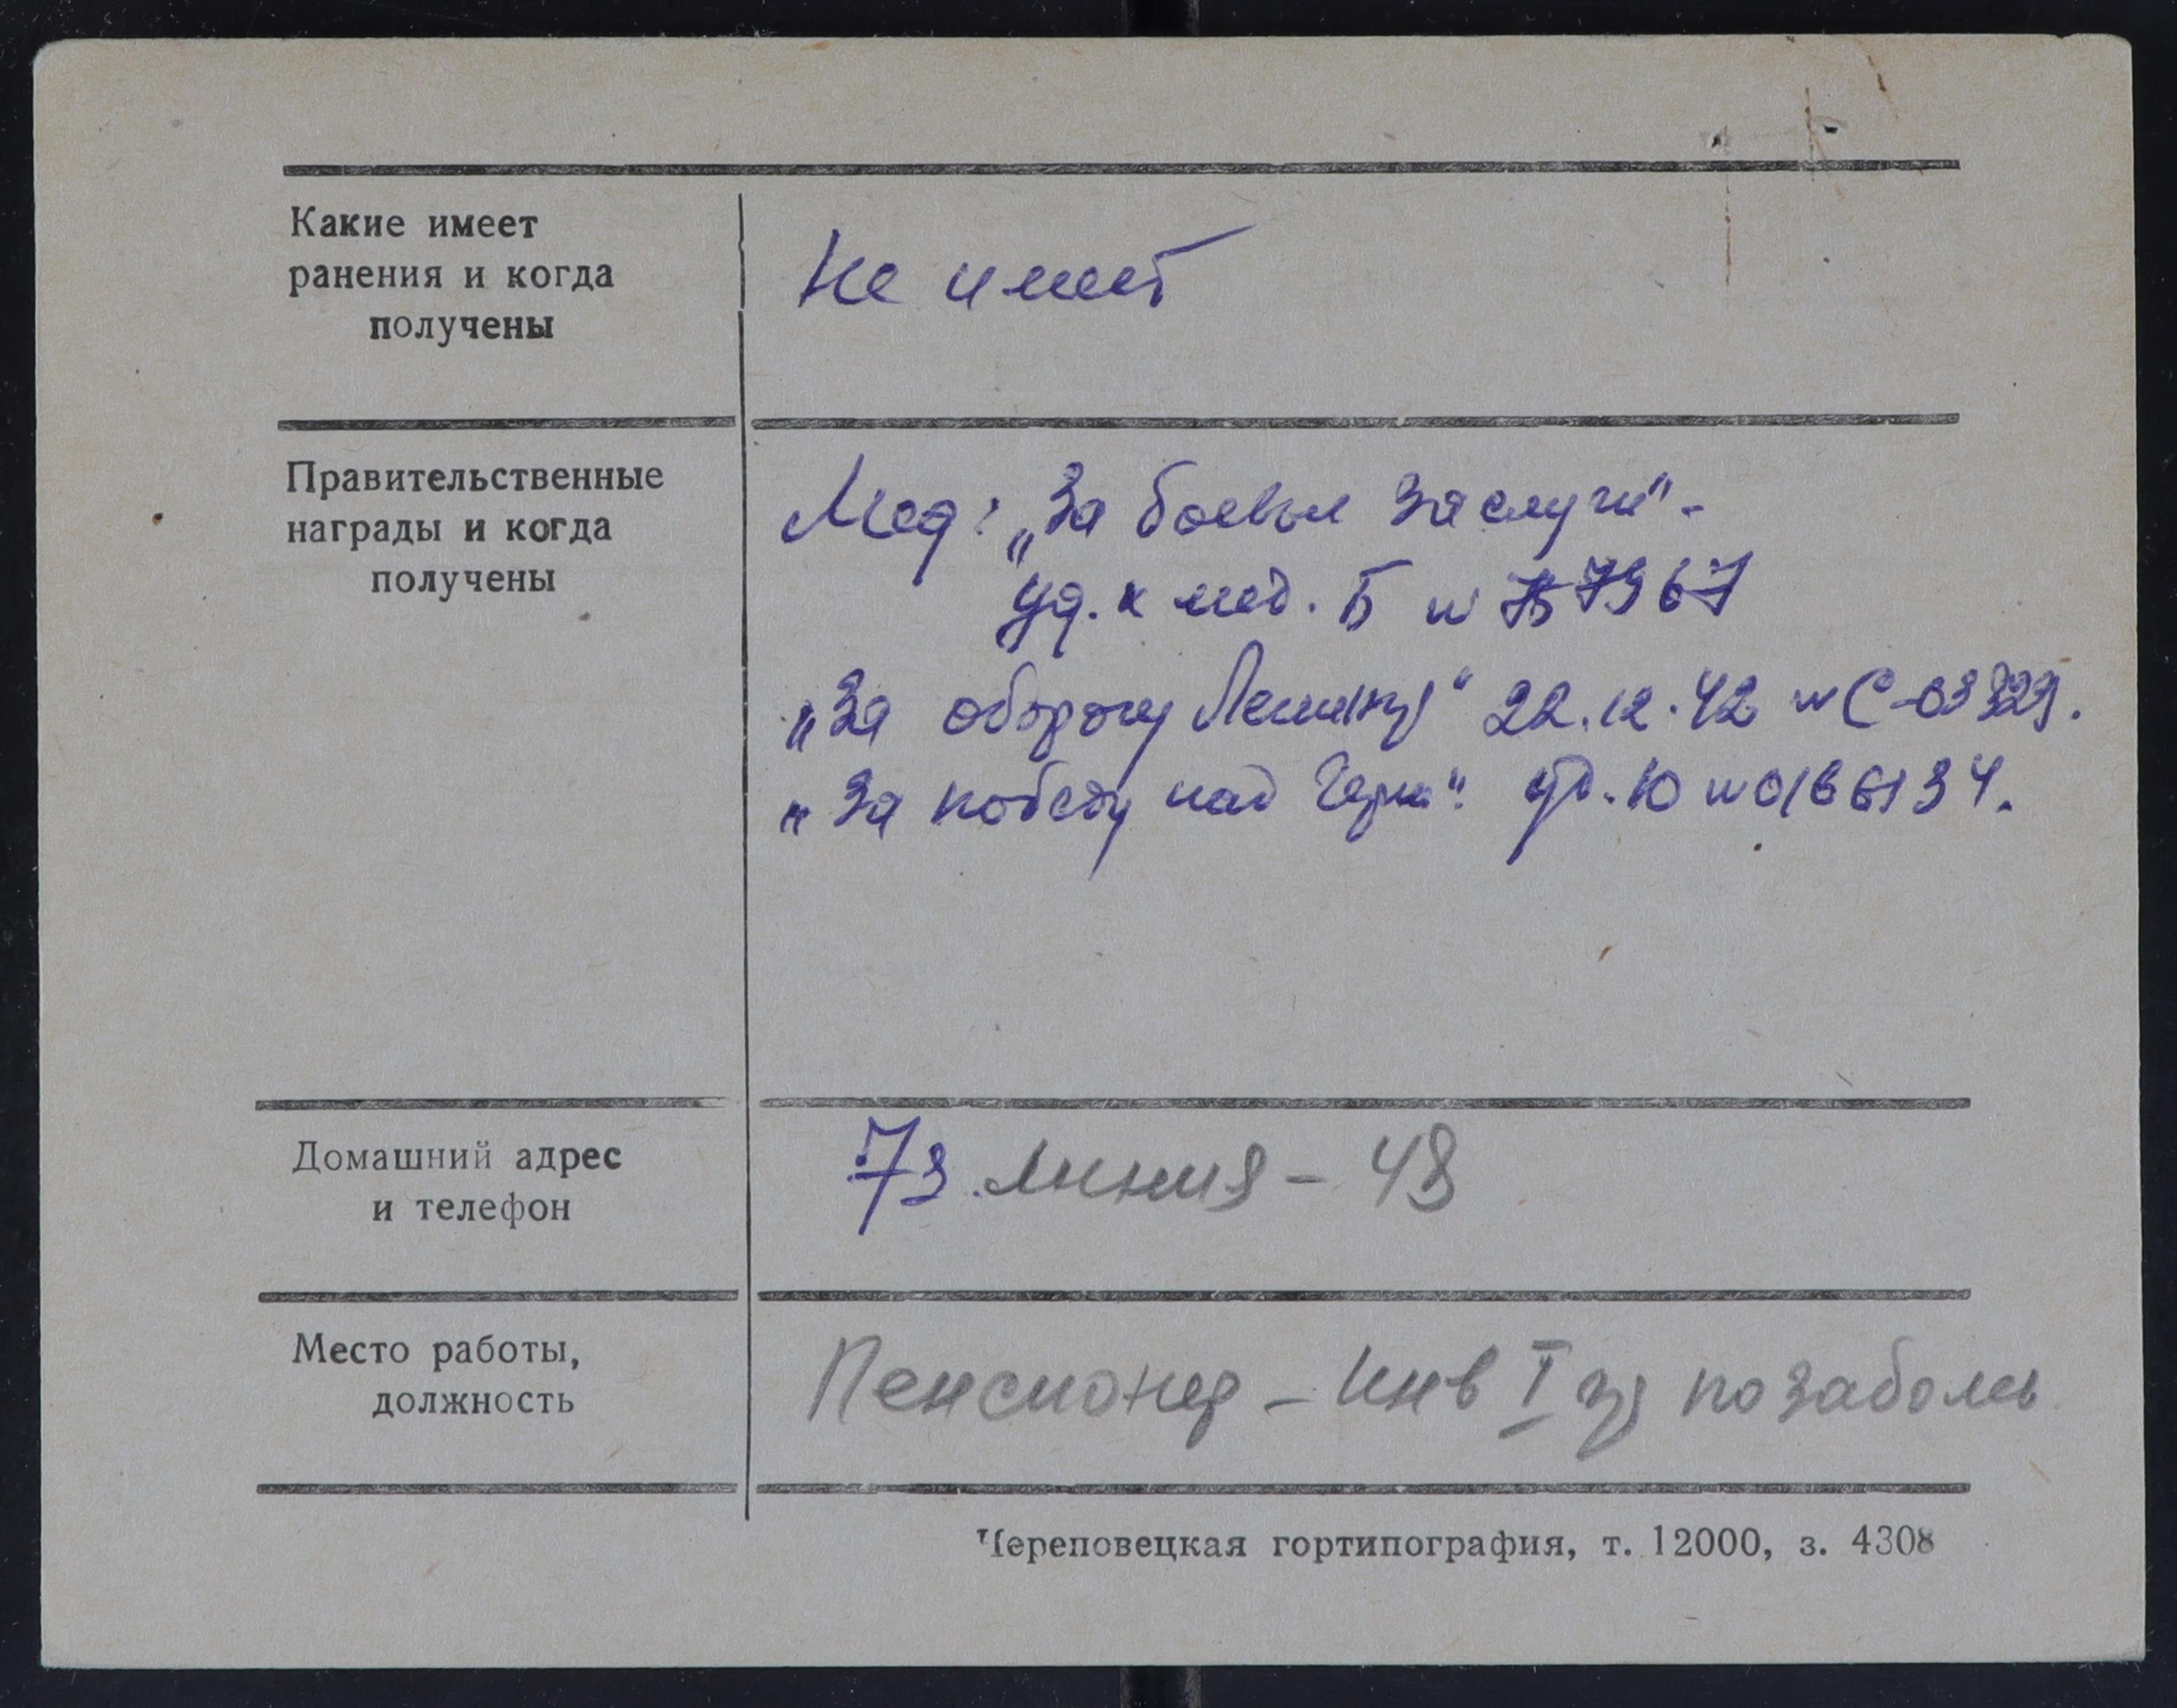 Какие имеет
ранения и когда
получены
Не имеет
Правительственные
награды и когда
получены
Мед: „За боевые заслуги" -
уд. к мед. Б № 757967
„За оборону Ленингр" 22.12.42 № С-03329.
„За победу над Герм". уд. Ю № 0166134.
Домашний адрес
и телефон
73 линия - 48
Место работы,
должность
Пенсионер - Инв I гр по заболев
Череповецкая гортипография, т. 12000, з. 4308